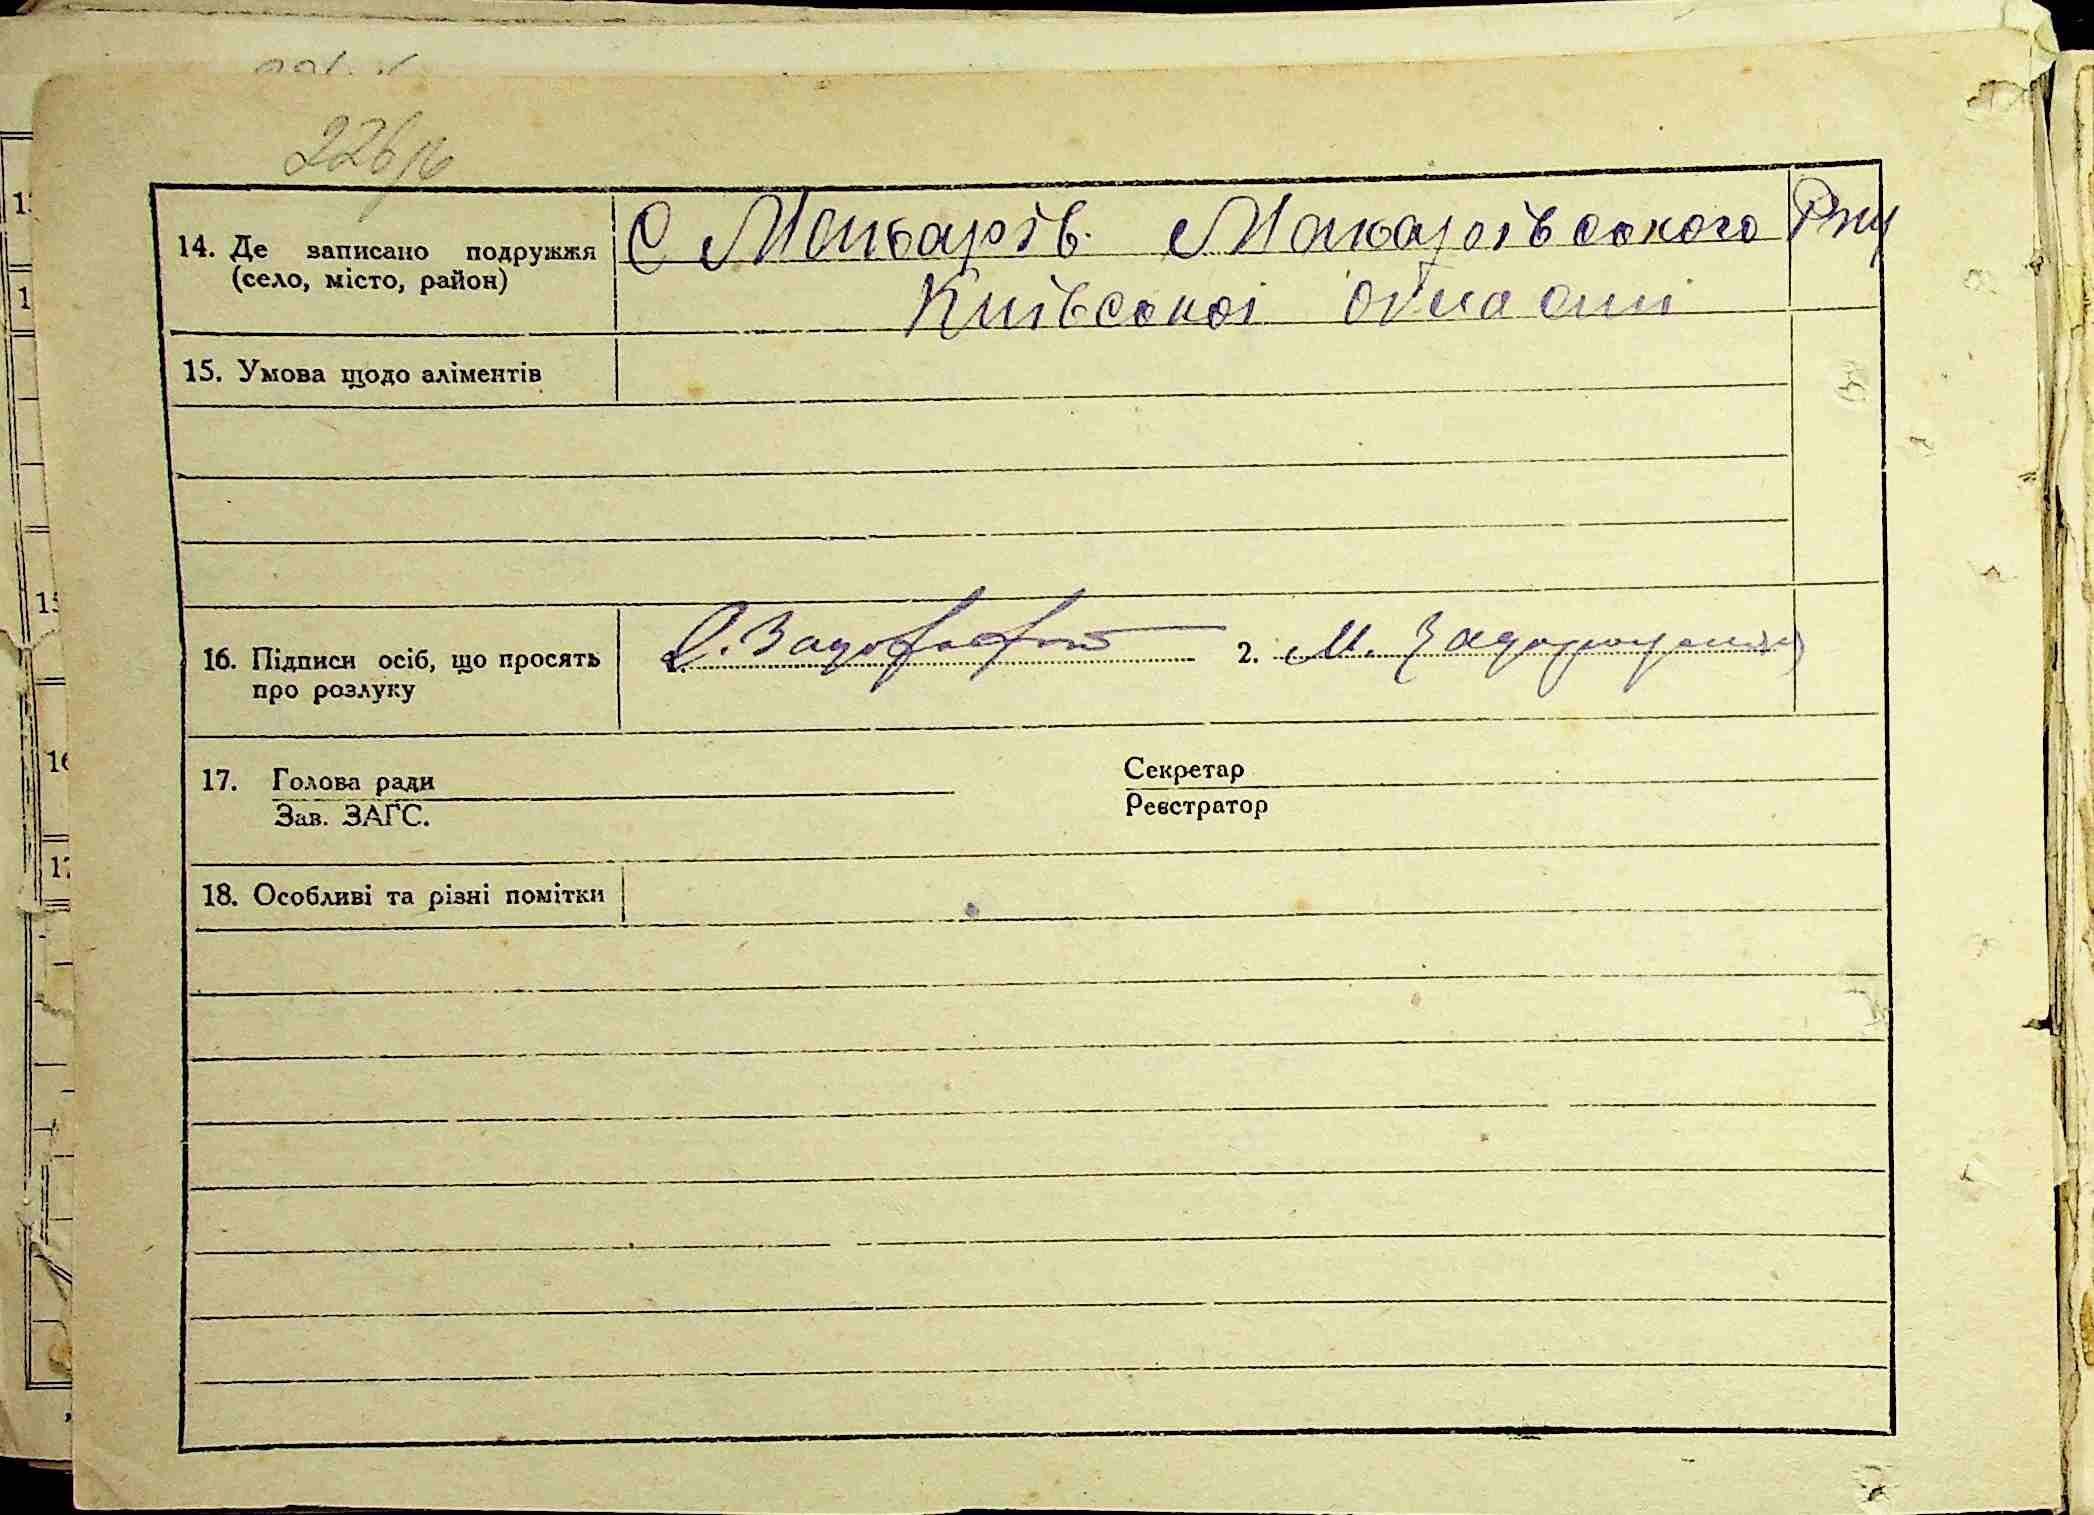 226/16
14. Де записано подружжя
(село, місто, район)
С Макарів. Макарівського Р-ну
Київської області
15. Умова щодо аліментів
16. Підписи осіб, що просять
про розлуку
2. М.
17. Голова ради
Зав. ЗАГС.
Секретар
Реєстратор
18. Особливі та різні помітки